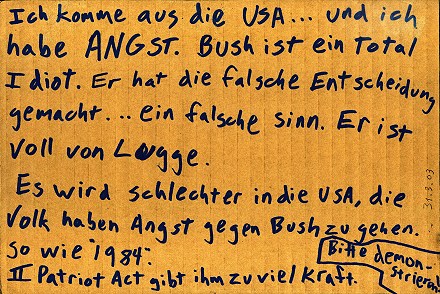 Ich komme aus die USA... und ich
habe ANGST. Bush ist ein Total
Idiot. Er hat die falsche Entscheidung
gemacht... ein falsche sinn. Er ist
voll von Lugge.
Es wird schlechter in die USA, die
Volk haben Angst gegen Bush zu gehen.
so wie "1984".
II Patriot Act gibt ihm zu viel Kraft.
Bitte demon-
strieren.
31.3.03